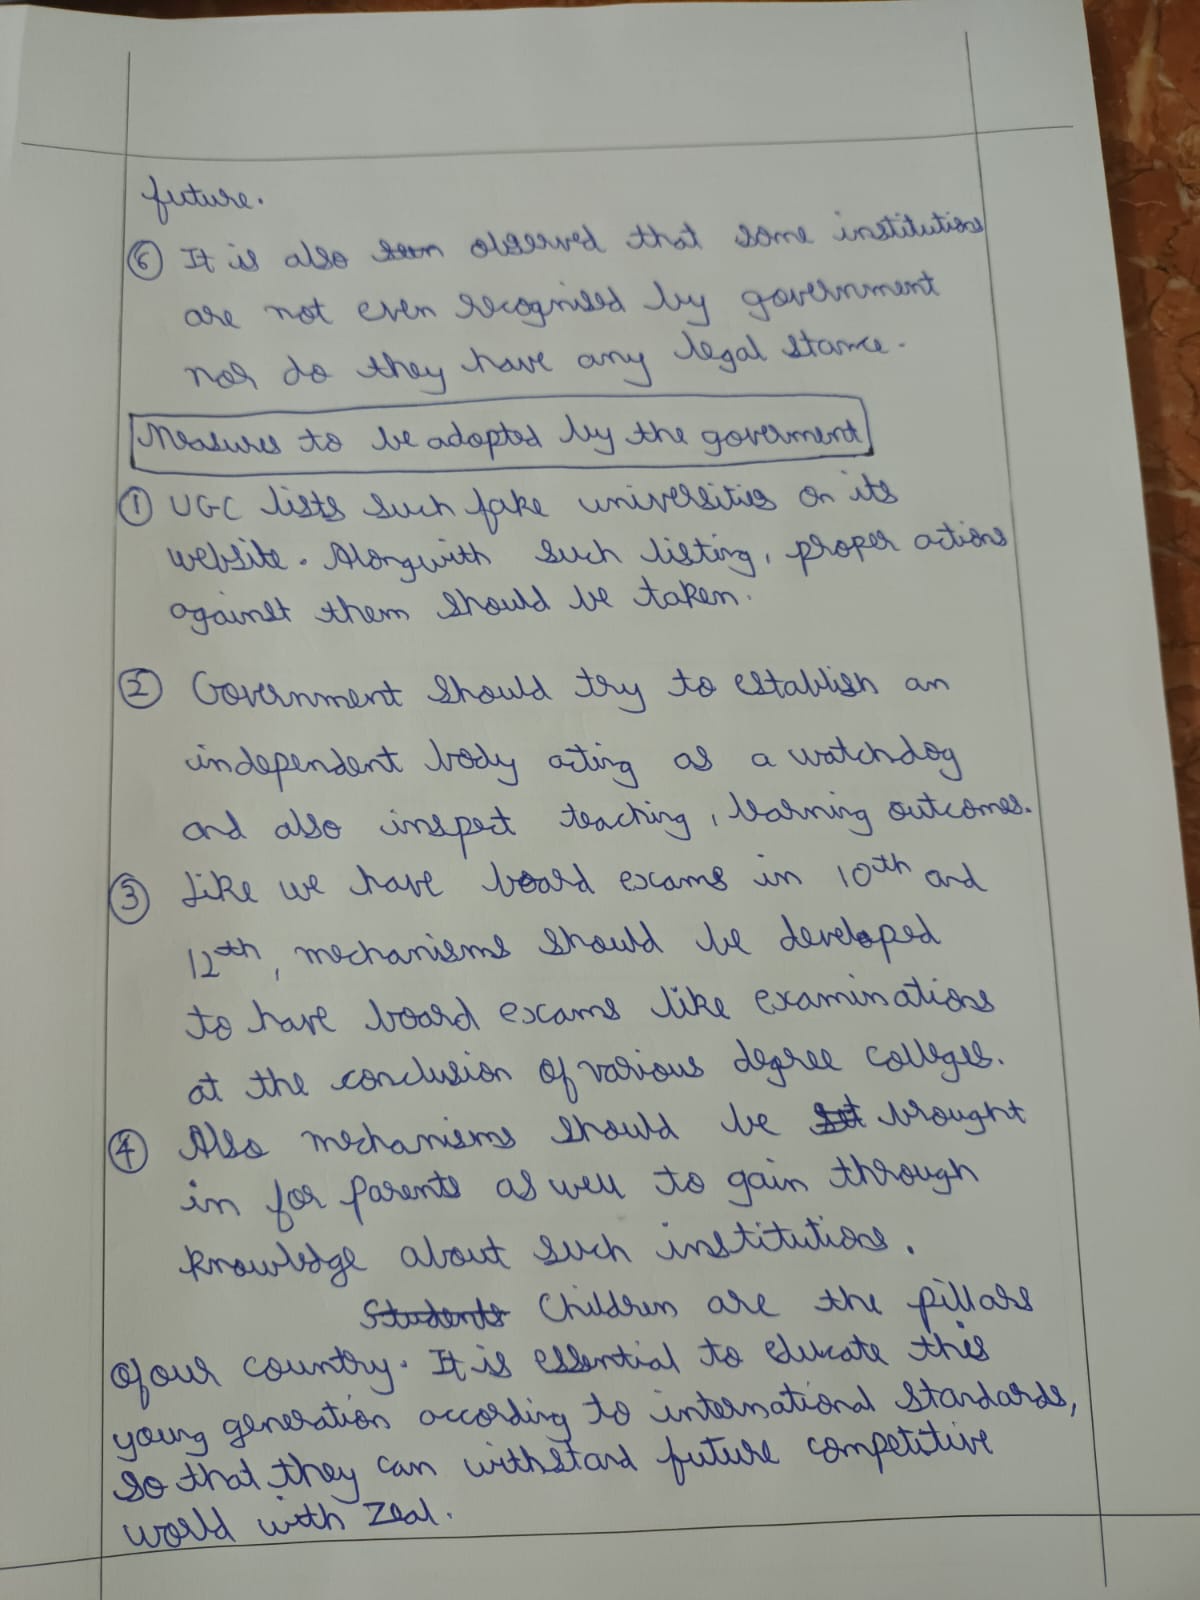 future.
⑥ It is also seen observed that some institutions
are not even recognised by government
nor do they have any legal stance.
Measures to be adopted by the goverment
① UGC lists such fake universities on its
website. Alongwith such listing, proper actions
against them should be taken.
② Government should try to establish an
independent body acting as a watchdog
and also inspect teaching, learning outcomes.
③ Like we have board exams in 10th and
12th, mechanisms should be developed
to have board exams like examinations
at the conclusion of various degree colleges.
④ Also mechanisms should be set brought
in for parents as well to gain through
knowledge about such institutions.
Students Children are the pillars
of our country. It is essential to educate this
young generation according to international standards,
so that they can withstand future competitive
world with zeal.